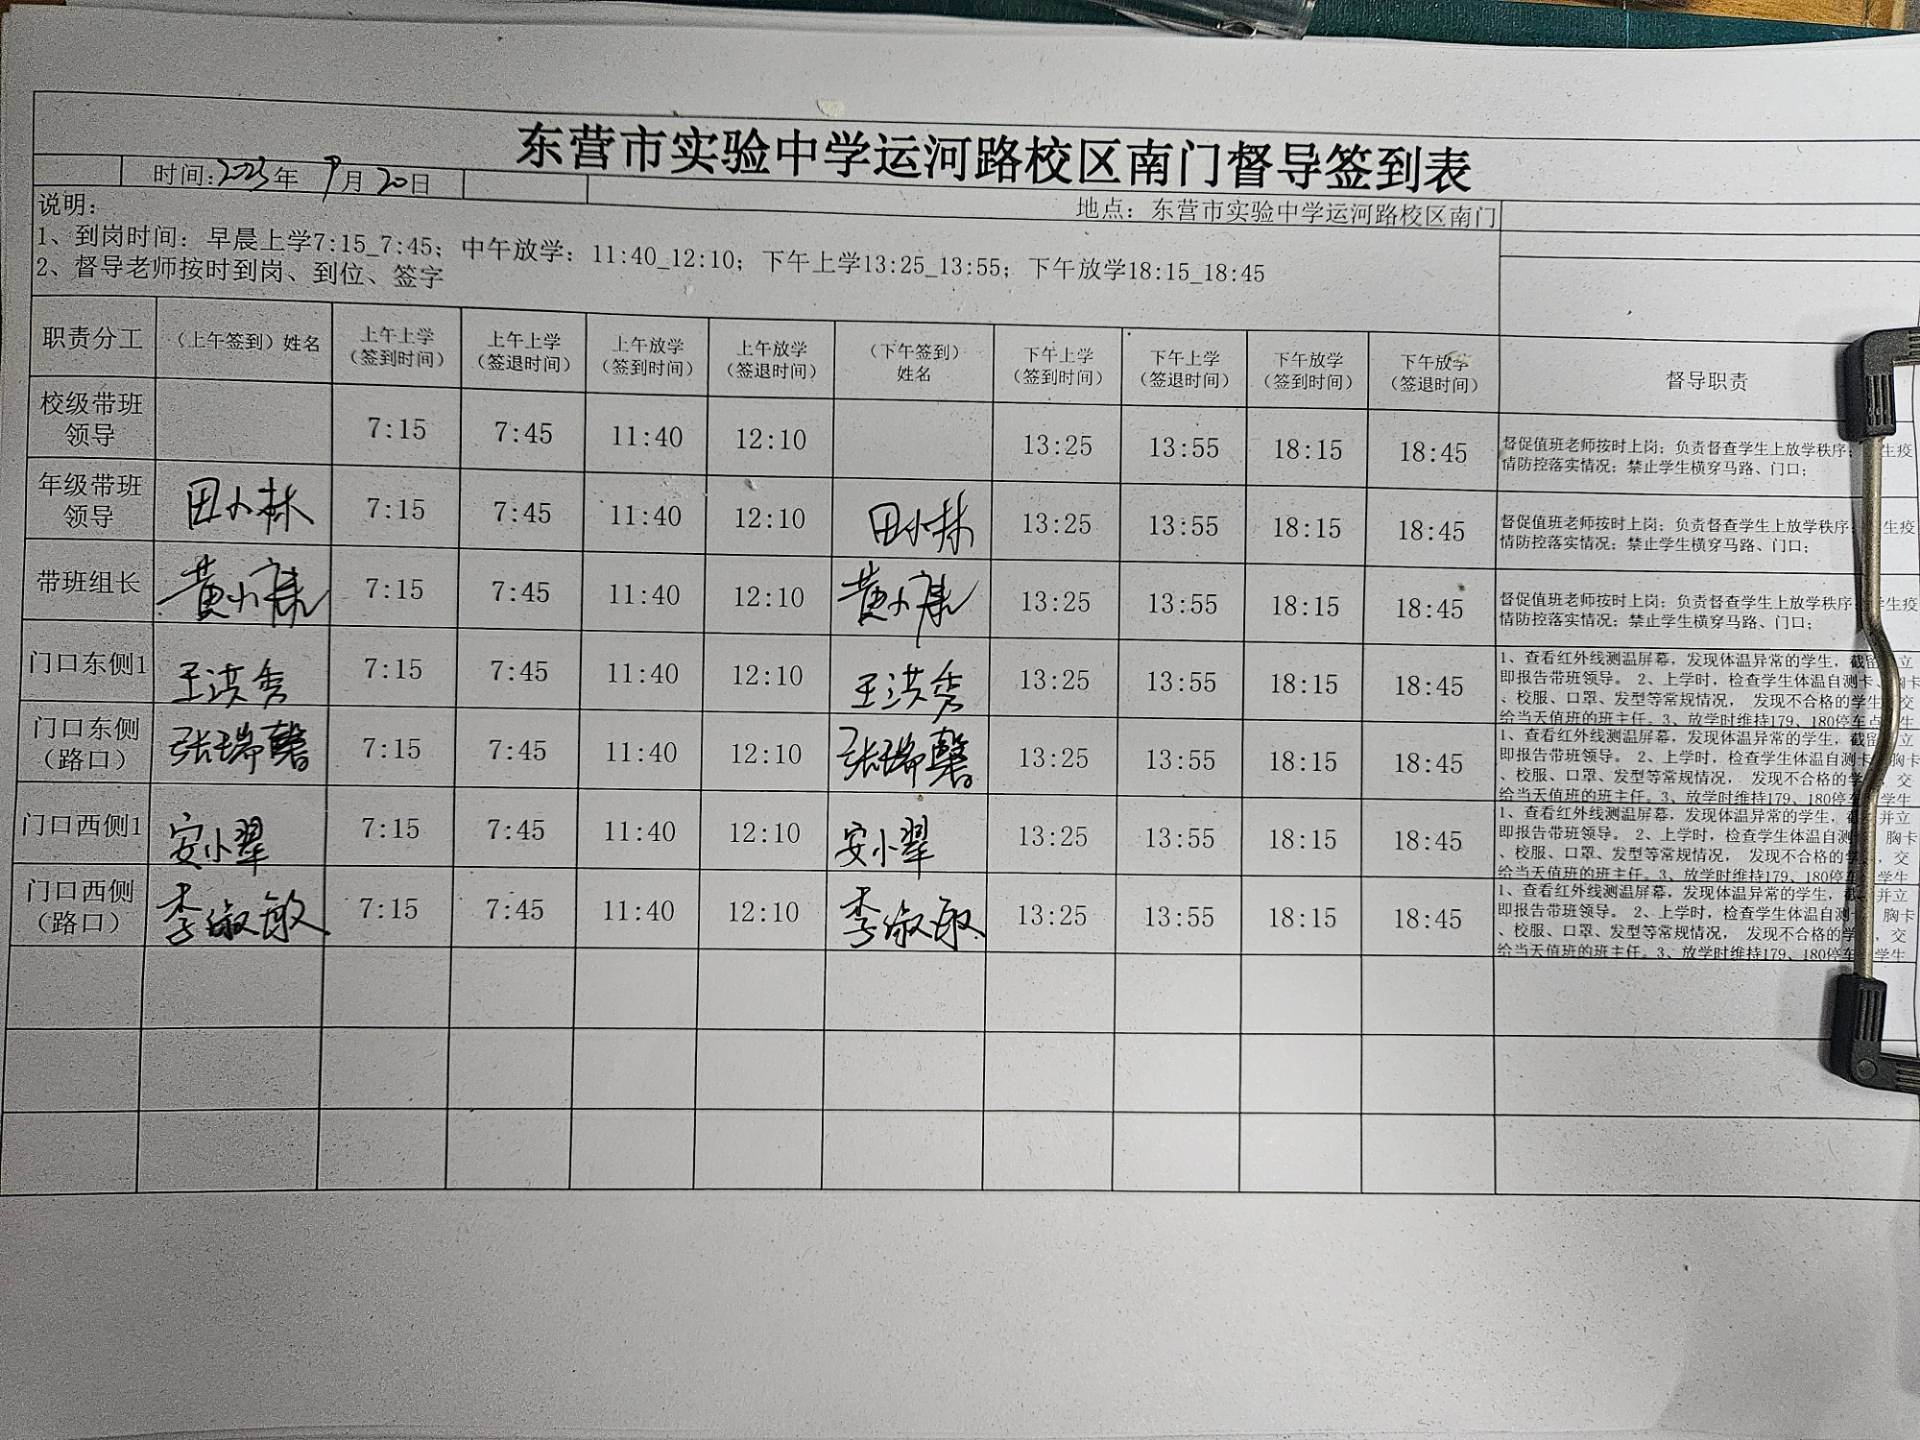 东营市实验中学运河路校区南门督导签到表
时间:2023年 9月 20日
地点：东营市实验中学运河路校区南门
说明：
1、到岗时间：早晨上学7:15_7:45；中午放学：11:40_12:10；下午上学13:25_13:55；下午放学18:15_18:45
2、督导老师按时到岗、到位、签字
职责分工 （上午签到）姓名 上午上学（签到时间） 上午上学（签退时间） 上午放学（签到时间） 上午放学（签退时间） （下午签到）姓名 下午上学（签到时间） 下午上学（签退时间） 下午放学（签到时间） 下午放学（签退时间） 督导职责
校级带班领导 7:15 7:45 11:40 12:10 13:25 13:55 18:15 18:45
督促值班老师按时上岗；负责督查学生上放学秩序；生疫
情防控落实情况；禁止学生横穿马路、门口；
年级带班领导 田小林 7:15 7:45 11:40 12:10 田小林 13:25 13:55 18:15 18:45
督促值班老师按时上岗；负责督查学生上放学秩序；生疫
情防控落实情况；禁止学生横穿马路、门口；
带班组长 黄小康 7:15 7:45 11:40 12:10 黄小康 13:25 13:55 18:15 18:45
督促值班老师按时上岗；负责督查学生上放学秩序；学生疫
情防控落实情况；禁止学生横穿马路、门口；
门口东侧1 王洪秀 7:15 7:45 11:40 12:10 王洪秀 13:25 13:55 18:15 18:45
1、查看红外线测温屏幕，发现体温异常的学生，截留 立
即报告带班领导。 2、上学时，检查学生体温自测卡、胸卡
、校服、口罩、发型等常规情况， 发现不合格的学生 交
给当天值班的班主任。3、放学时维持179、180停车点 生
门口东侧（路口） 张瑞馨 7:15 7:45 11:40 12:10 张瑞馨 13:25 13:55 18:15 18:45
1、查看红外线测温屏幕，发现体温异常的学生，截留 立
即报告带班领导。 2、上学时，检查学生体温自测卡 胸卡
、校服、口罩、发型等常规情况， 发现不合格的学 ，交
给当天值班的班主任。3、放学时维持179、180停车 学生
门口西侧1 安小翠 7:15 7:45 11:40 12:10 安小翠 13:25 13:55 18:15 18:45
1、查看红外线测温屏幕，发现体温异常的学生， 并立
即报告带班领导。 2、上学时，检查学生体温自测 胸卡
、校服、口罩、发型等常规情况， 发现不合格的学 ，交
给当天值班的班主任。3、放学时维持179、180停车 学生
门口西侧（路口） 李淑敏 7:15 7:45 11:40 12:10 李淑敏 13:25 13:55 18:15 18:45
1、查看红外线测温屏幕，发现体温异常的学生， 并立
即报告带班领导。 2、上学时，检查学生体温自测 胸卡
、校服、口罩、发型等常规情况， 发现不合格的学 ，交
给当天值班的班主任。3、放学时维持179、180停车 学生